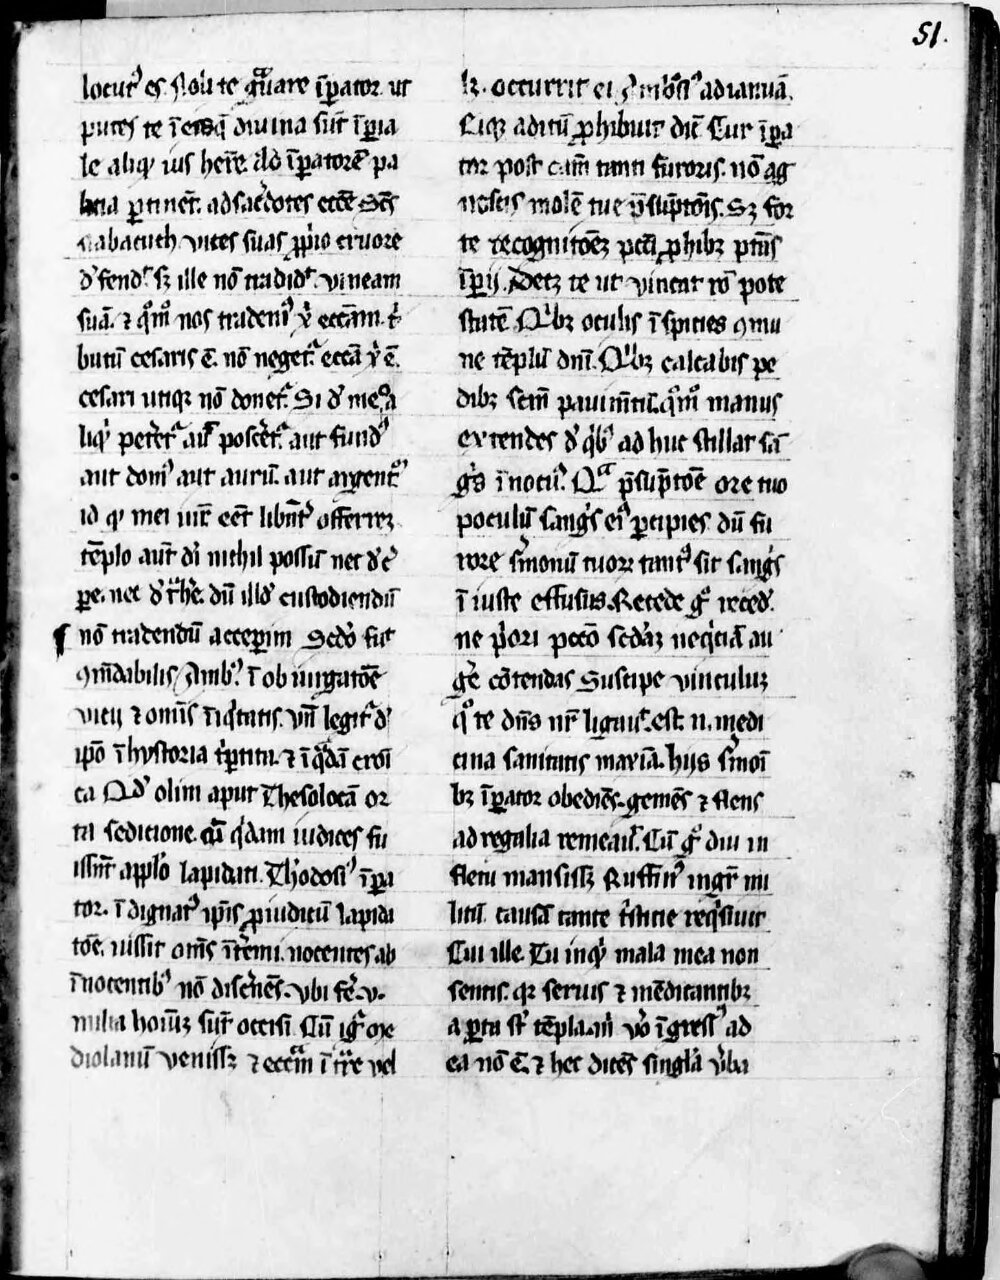 51.
locut᷒ es. Noli te gᷓuare īꝑator. ut
putes te ī ea q̄ diuina sūt īꝑia
le aliq̄ ius hēre. ad īꝑatorē pa
latia ꝑtinēt. ad sac̄dotes ecc̄e. Sc̄s
nabaouth vites suas ꝓprio cruore
d̓fend᷒. sꝫ ille nō tradidᷣ. vineam
suā. ⁊ qͦm̊ nos tradem᷒ xp̄i ecc̄am. t̓
butū cesaris ē. nō negetᷣ. ecc̄a xp̄i ē.
cesari utiqꝫ nō donetᷣ. Si d̓ me a
liqͥ petēretᷣ aut poscēretᷣ. aut fund᷒
aut dom᷒ aut aurū. aut argentū᷒
id qͥ mei iur̄ eēt libnt̓ offerrē.
tēplo aut̄ dī nichil possū nec d̓c̓
ꝑe. nec d̓t̓he. dū illd̓ custodiendū
nō tradendū acceperim Scd̓o fuit
ꝯm̄dabilis Amb᷒. ī ob iurgatōe
vicij ⁊ omīs īiqͥtatis. vn̄ legitᷣ d̓
ip̄o ī hystoria t̓ꝑtita. ⁊ ī qͣdā croī
ca Qd̓ olim aput Thesolocā or
ta sedicione. cū qͥdam iudices fu
issēt applo᷒ lapidati. Theodosi᷒ īꝑa
tor. ī dignat᷒ ip̄is ꝓ iudicū lapida
tōe. iussit om̄s īt̓emi. nocentes ab
ī nocentib᷒ nō disc̓nēs. vbi fe̓. v.
milia hoīuꝫ sūt occisi. Cū igᷣ me
diolanū venissꝫ ⁊ ecc̄aꝫ ī trᷓre vel
lꝫ. occurrit ei Ambrosi᷒ ad ianuā.
Eiqꝫ aditū ꝓhibuit dic̄. Cur īꝑa
tor post cam̄ tanti furoris. nō ag
noscis molē tue p̄sūptōis. Sꝫ for
te recognitōeꝫ pcc̄i ꝓhibꝫ ptās
īꝑij. Decꝫ te ut vincat rō pote
statē Qͥbꝫ oculis ī spities ꝯmu
ne tēplū dn̄i. Qͥbꝫ calcabis pe
dibꝫ scm̄ pauim̄tū. qͦm̊ manus
extendes d̓ qͥb᷒ ad huc stillat sā
gͥs īnocū᷒. Qᷓ p̄sūptōe ore tuo
poculū sangͥs ei᷒ ꝑcipies dū fu
rore s̓monū tuoꝝ tant᷒ sit sangͥs
ī iuste effusus. Recede gͦ reced̓.
ne p̓ori pccō scd̓aꝫ neqͥciā au
ge̓ cōtendas Suscipe vinculuꝫ
qͦ te dn̄s nr̄ ligauit. est. n. medi
cina sanitatis maxīa. hijs s̓moi
bꝫ īꝑator obediēs. gemēs ⁊ flens
ad regalia remeauit. Cū gͦ diu in
fletu mansissꝫ Ruffin᷒ mgr̄ mi
litū. causā tante t̓sticie reqͥsiuit
Cui ille. Tu inqͥt mala mea non
sentis. qꝛ seruis ⁊ mēdicantibꝫ
a ꝑta sᷣ tēpla. m̓ v̓o īgress᷒ ad
ea nō ē. ⁊ hec dicēs singla᷒ v̓ba